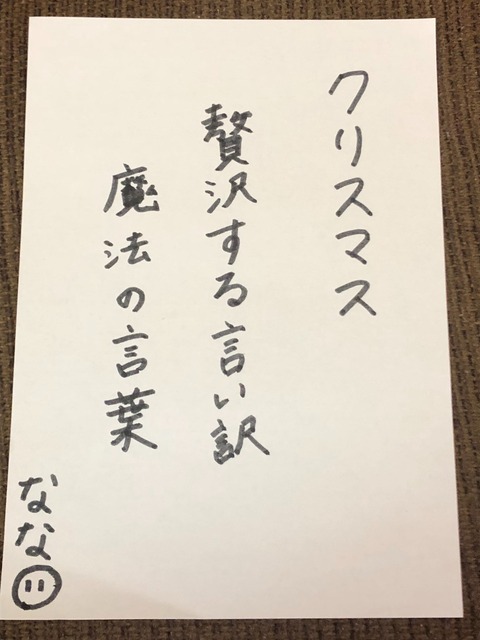 クリスマス
贅沢する言い訳
魔法の言葉
なな